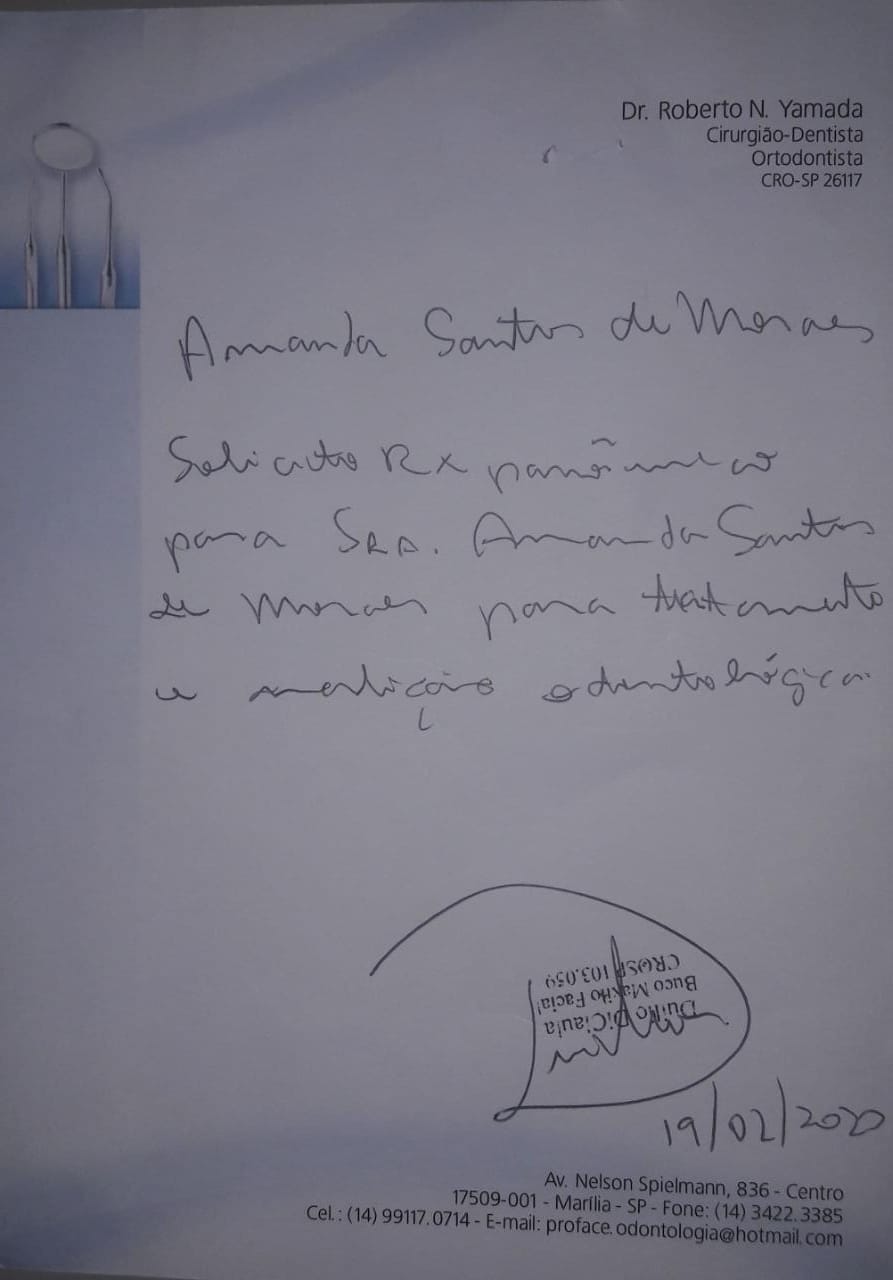 Dr. Roberto N. Yamada
Cirurgião-Dentista
Ortodontista
CRO-SP 26117
Amanda Santos de Moraes
Solicito Rx panôramico
para SRA. Amanda Santos
de Moraes para tratamento
e odontológica
CROSP 103.059
Buco Maxilo Facial
Duilio DiCiaula
19/02/2020
Av. Nelson Spielmann, 836 - Centro
17509-001 - Marília - SP - Fone: (14) 3422.3385
Cel.: (14) 99117.0714 - E-mail: proface.odontologia@hotmail.com